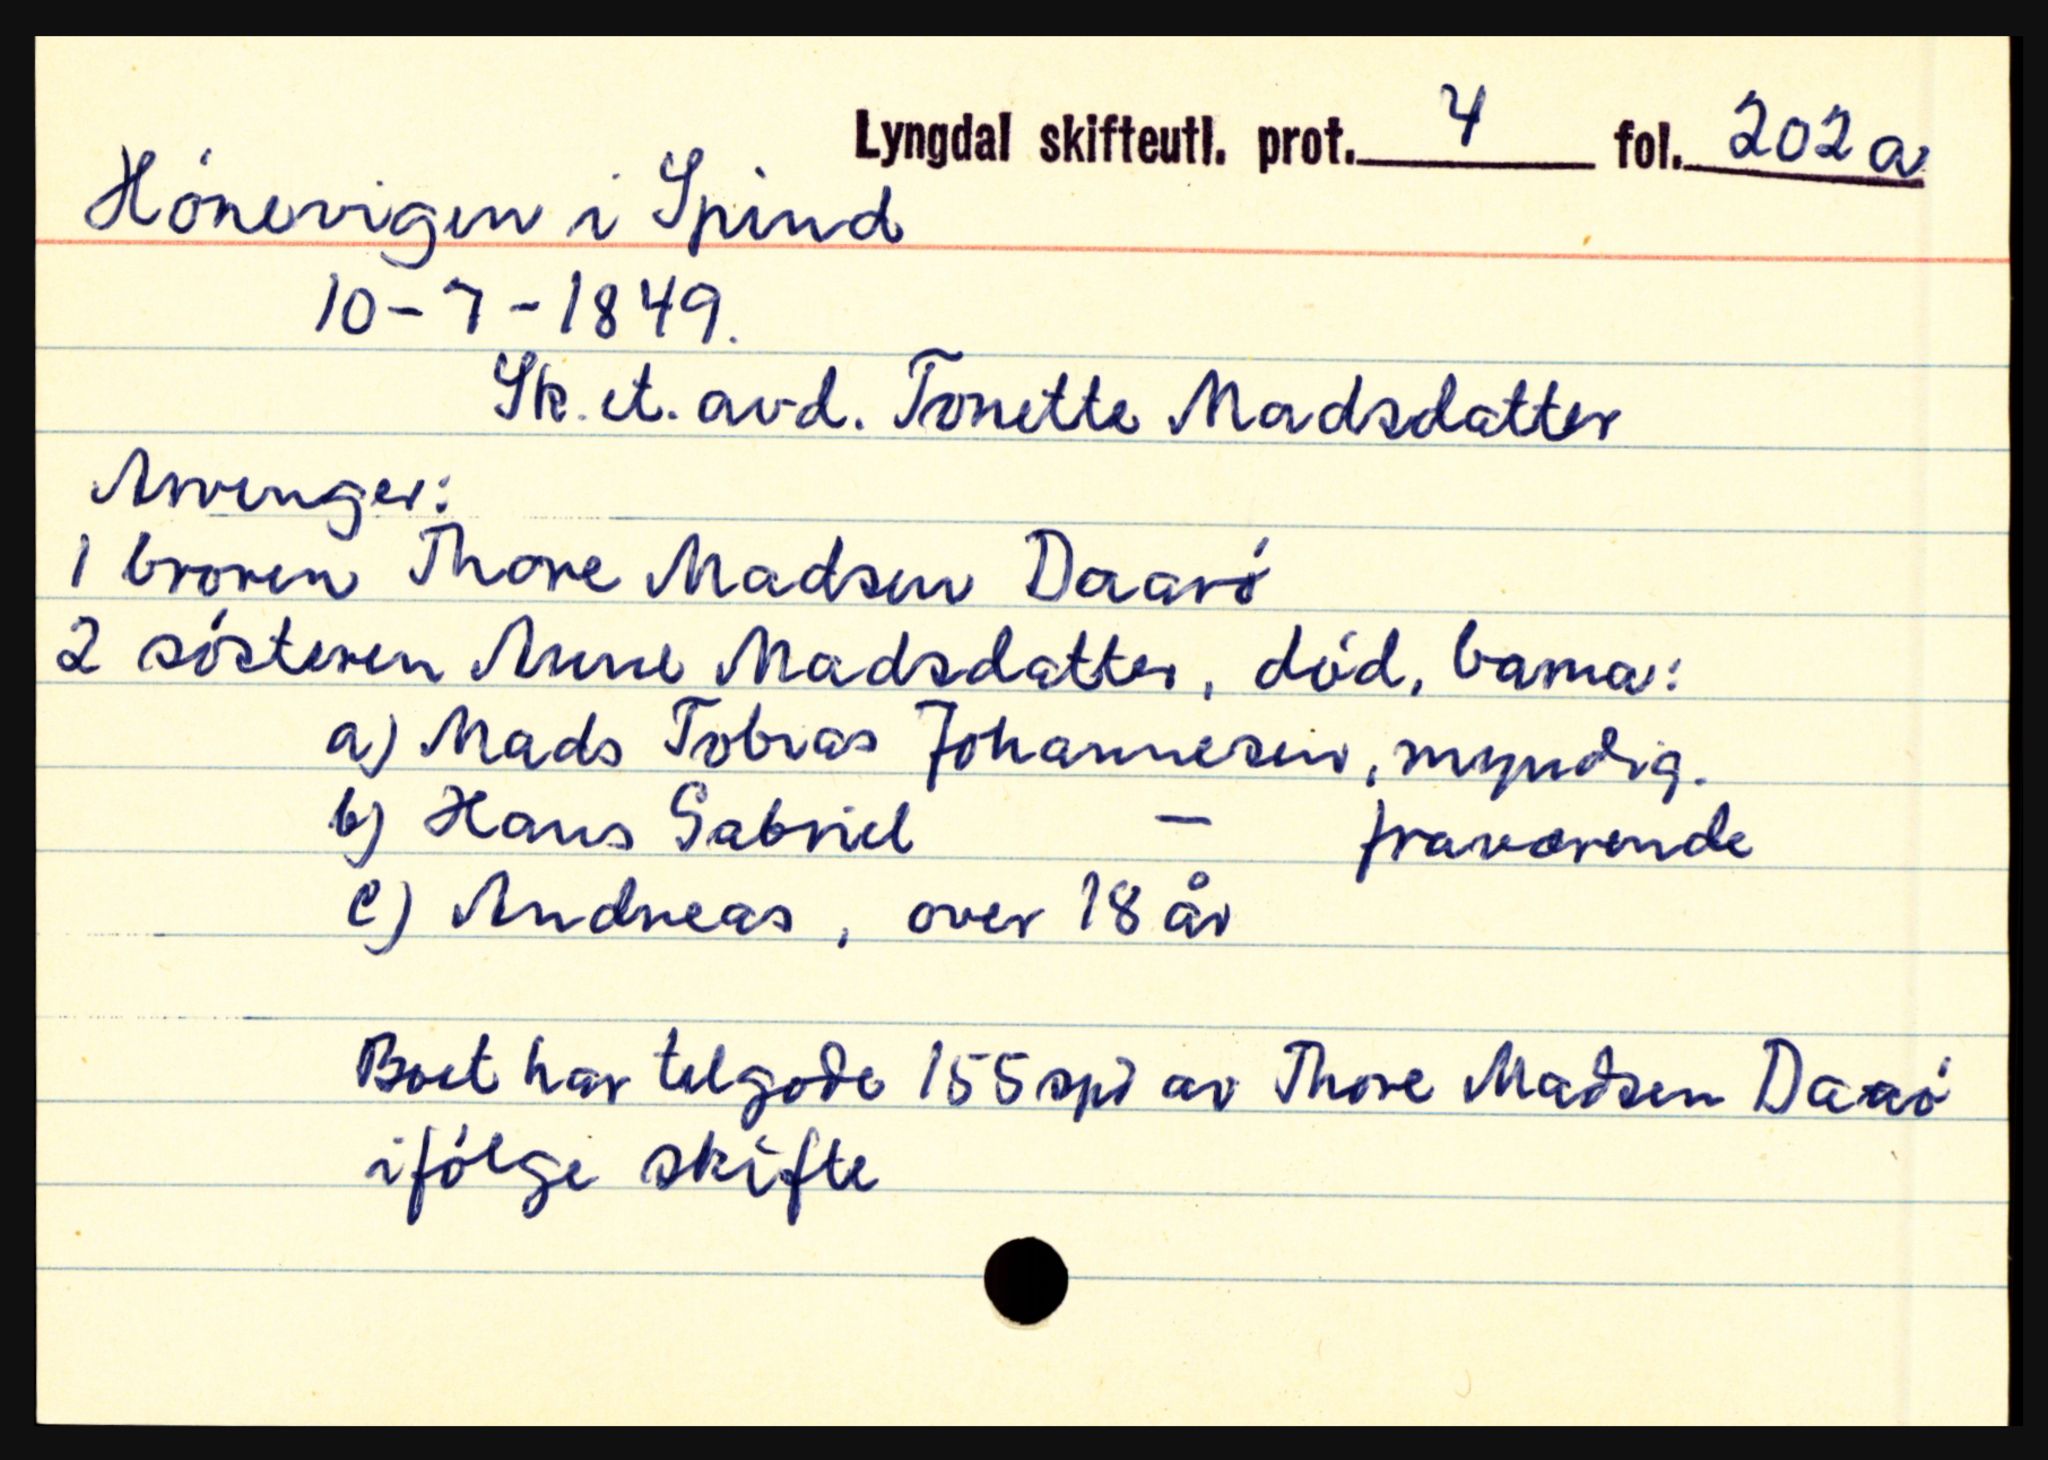 Lyngdal skifteutl. prot. 4 fol. 202a
Hónevigen i Spind
10-7-1849.
Sk. et. avd. Tonette Madsdatter
Arvinger:
1 broren Thore Madsen Daaró
2 sósteren Anne Madsdatter, dód, barna:
a) Mads Tobias Johannesen, myndig.
b) Hans Gabriel — fraværende
c) Andreas, over 18 år
Boet har tilgode 155 spd av Thore Madsen Daaró
ifólge skifte